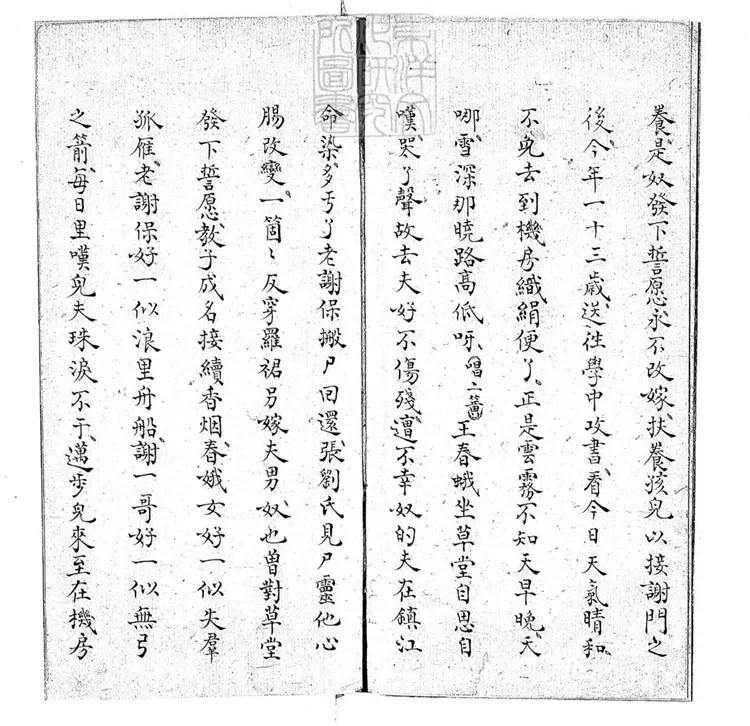 養是奴發下誓愿永不改嫁扶養孩兒以接謝門之
後今年一十三歲送往學中攻書看今日天氣晴和
不免去到機房織絹便了正是雲霧不知天早晚天
哪雪深那曉路高低呀唱二簧王春蛾坐草堂自思自
嘆哭了聲故去夫好不傷殘遭不幸奴的夫在鎮江
命染多亐了老謝保搬尸回還張劉氏見尸靈他心
腸改變一箇〻反穿羅裙另嫁夫男奴也曽對草堂
發下誓愿教子成名接續香烟春娥女好一似失羣
孤雁老謝保好一似浪里舟船謝一哥好一似無弓
之箭每日里嘆兒夫珠淚不干邁步兒來至在機房
東洋文化研究所圖書